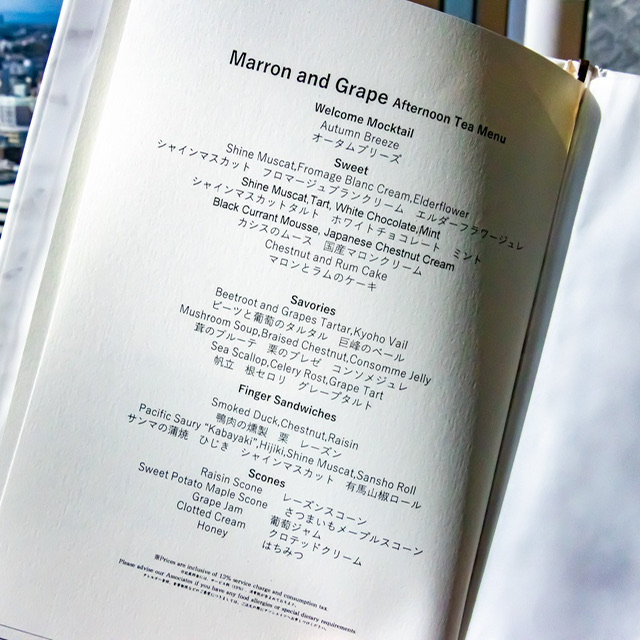 Marron and Grape Afternoon Tea Menu
Welcome Mocktail
Autumn Breeze
オータムブリーズ
Sweet
Shine Muscat,Fromage Blanc Cream,Elderflower
シャインマスカット フロマージュブランクリーム エルダーフラワージュレ
Shine Muscat,Tart, White Chocolate,Mint
シャインマスカットタルト ホワイトチョコレート ミント
Black Currant Mousse, Japanese Chestnut Cream
カシスのムース 国産マロンクリーム
Chestnut and Rum Cake
マロンとラムのケーキ
Savories
Beetroot and Grapes Tartar,Kyoho Vail
ビーツと葡萄のタルタル 巨峰のベール
Mushroom Soup,Braised Chestnut,Consomme Jelly
茸のブルーテ 栗のブレゼ コンソメジュレ
Sea Scallop,Celery Rost,Grape Tart
帆立 根セロリ グレープタルト
Finger Sandwiches
Smoked Duck,Chestnut,Raisin
鴨肉の燻製 栗 レーズン
Pacific Saury "Kabayaki",Hijiki,Shine Muscat,Sansho Roll
サンマの蒲焼 ひじき シャインマスカット 有馬山椒ロール
Scones
Raisin Scone レーズンスコーン
Sweet Potato Maple Scone さつまいもメープルスコーン
Grape Jam 葡萄ジャム
Clotted Cream クロテッドクリーム
Honey はちみつ
※Prices are inclusive of 15% service charge and consumption tax.
Please advise our Associates if you have any food allergies or special dietary requirements